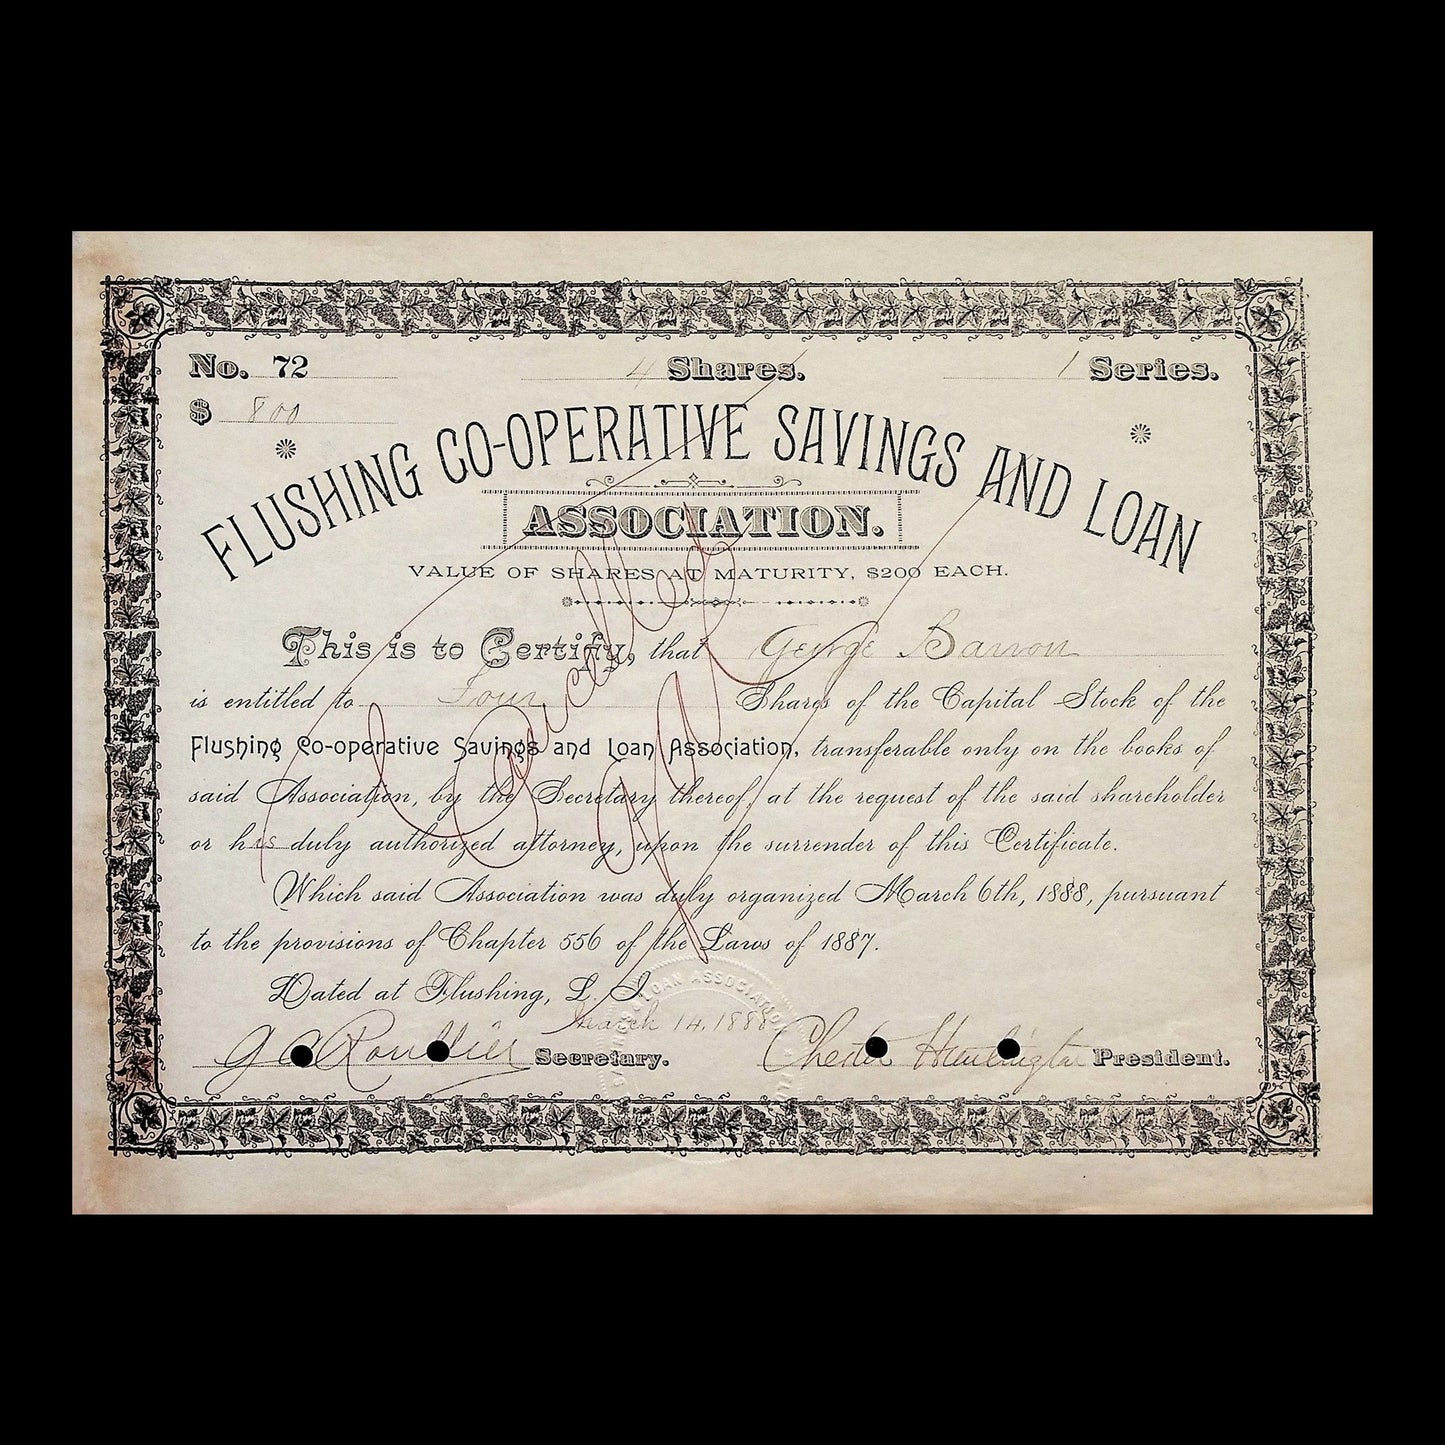 No. 72 4 Shares. 1 Series.
$ 800
FLUSHING CO-OPERATIVE SAVINGS AND LOAN
ASSOCIATION.
VALUE OF SHARES AT MATURITY, $200 EACH.
This is to Certify, that George Barron
is entitled to Four Shares of the Capital Stock of the
Flushing Co-operative Savings and Loan Association, transferable only on the books of
said Association, by the Secretary thereof, at the request of the said shareholder
or his duly authorized attorney, upon the surrender of this Certificate.
Which said Association was duly organized March 6th, 1888, pursuant
to the provisions of Chapter 556 of the Laws of 1887.
Dated at Flushing, L. I.
March 14, 1888
Secretary. Chester Huntington President.
Cancelled
LOAN ASSOCIATION